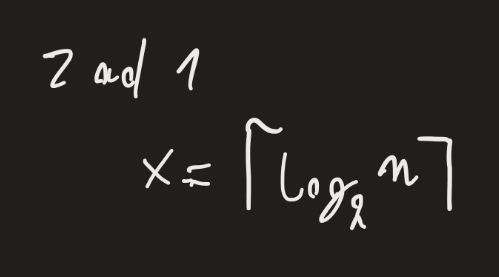 Zad 1
x = ⌈log₂ n⌉